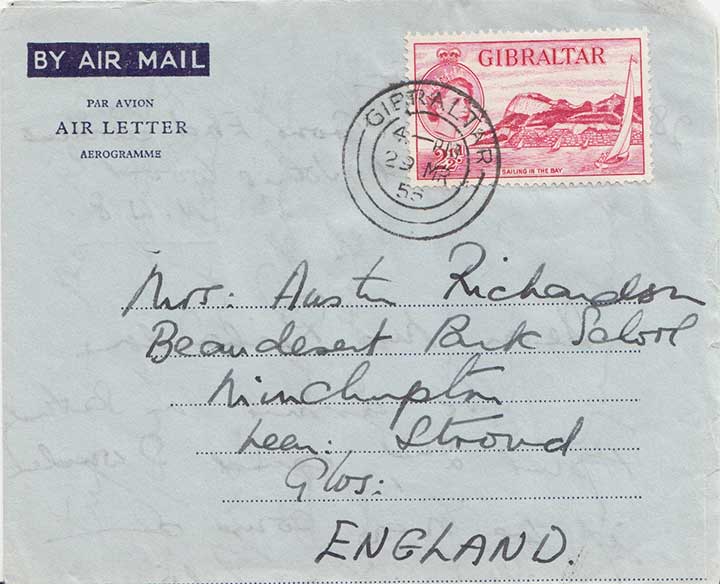 BY AIR MAIL
PAR AVION
AIR LETTER
AEROGRAMME
GIBRALTAR
2½D
SAILING IN THE BAY
GIBRALTAR
4 - PM
29 MR
55
Mrs. Austin Richardson
Beaudesert Park School
Minchinpton
Near: Stroud
Glos:
ENGLAND.